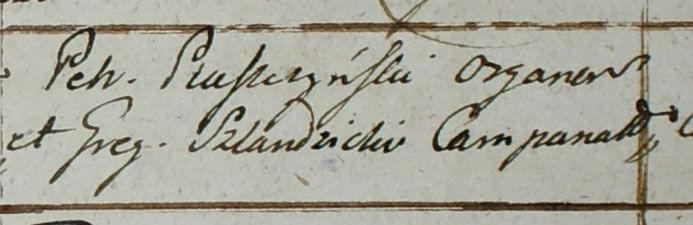 Petr. Piuszczyński Organar
et Greg. Szlandzicki Campanato